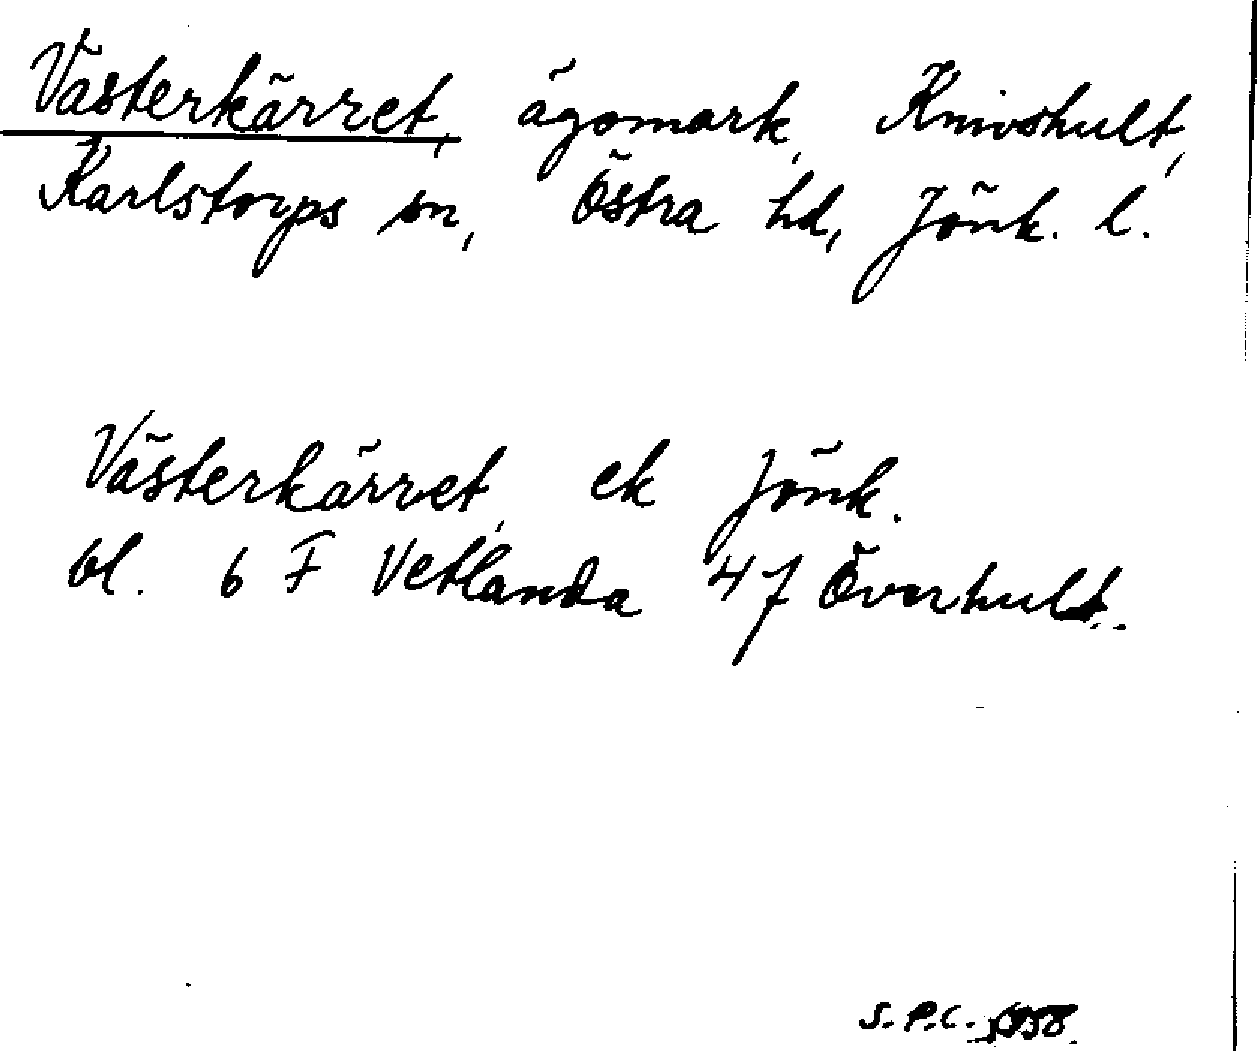 Västerkärret, ägomark, Knivshult,
Karlstorps sn, Östra hd, Jönk. l.
Västerkärret, ek Jönk.
bl. 6 F Vetlanda 4 j Överhult.
S.P.C. 1958.